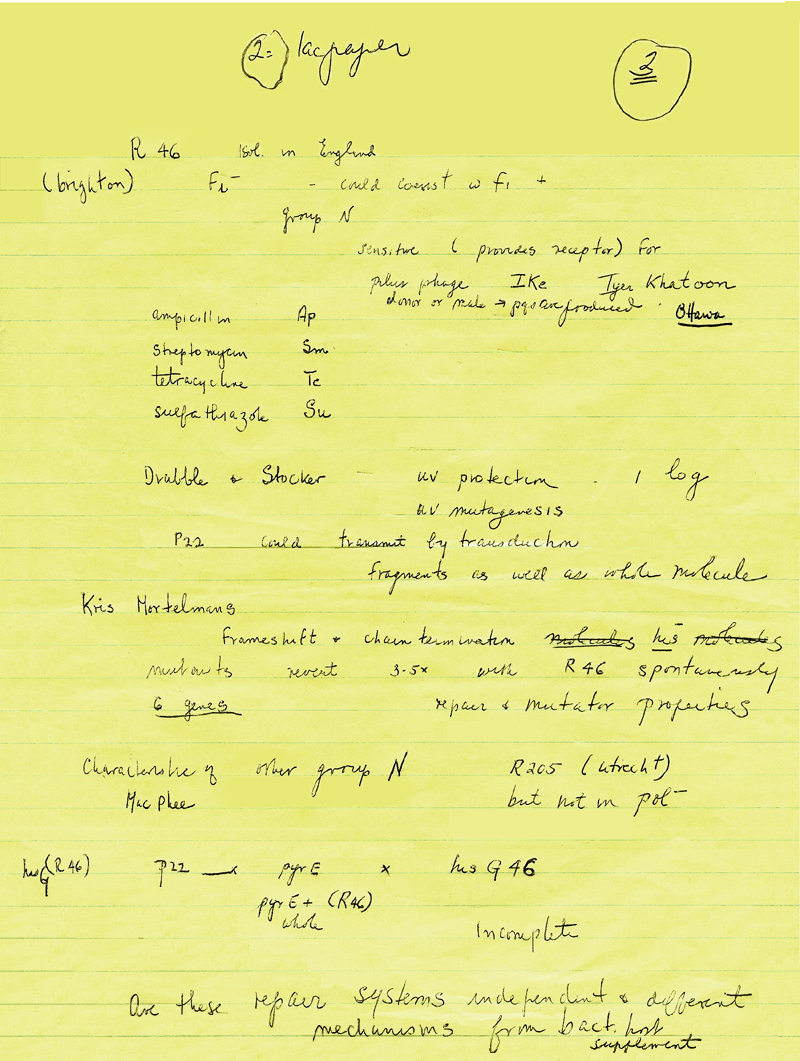 2= lac paper
3
R 46 isol. in England
(brighton) Fi- - could coexist w fi +
group N
sensitive ( provides receptor) for
pilus phage IKe Iyer Khatoon
donor or male → are produced. Ottawa
ampicillin Ap
streptomycin Sm
tetracycline Tc
sulfathiazole Su
Drabble & Stocker — uv protection - 1 log
uv mutagenesis
P22 could transmit by transduction
fragments as well as whole molecule
Kris Mortelmans
Frameshift & chain termination molecules his- molecules
mutants revert 3-5x with R 46 spontaneously
6 genes repair & mutator properties
Characteristic of other group N R205 (Utrecht)
MacPhee but not in pol-
hisG(R46) P22 —x pyrE x his G 46
pyrE+ (R46)
whole
Incomplete
Are these repair systems independent & different
mechanisms from bact. host
supplement